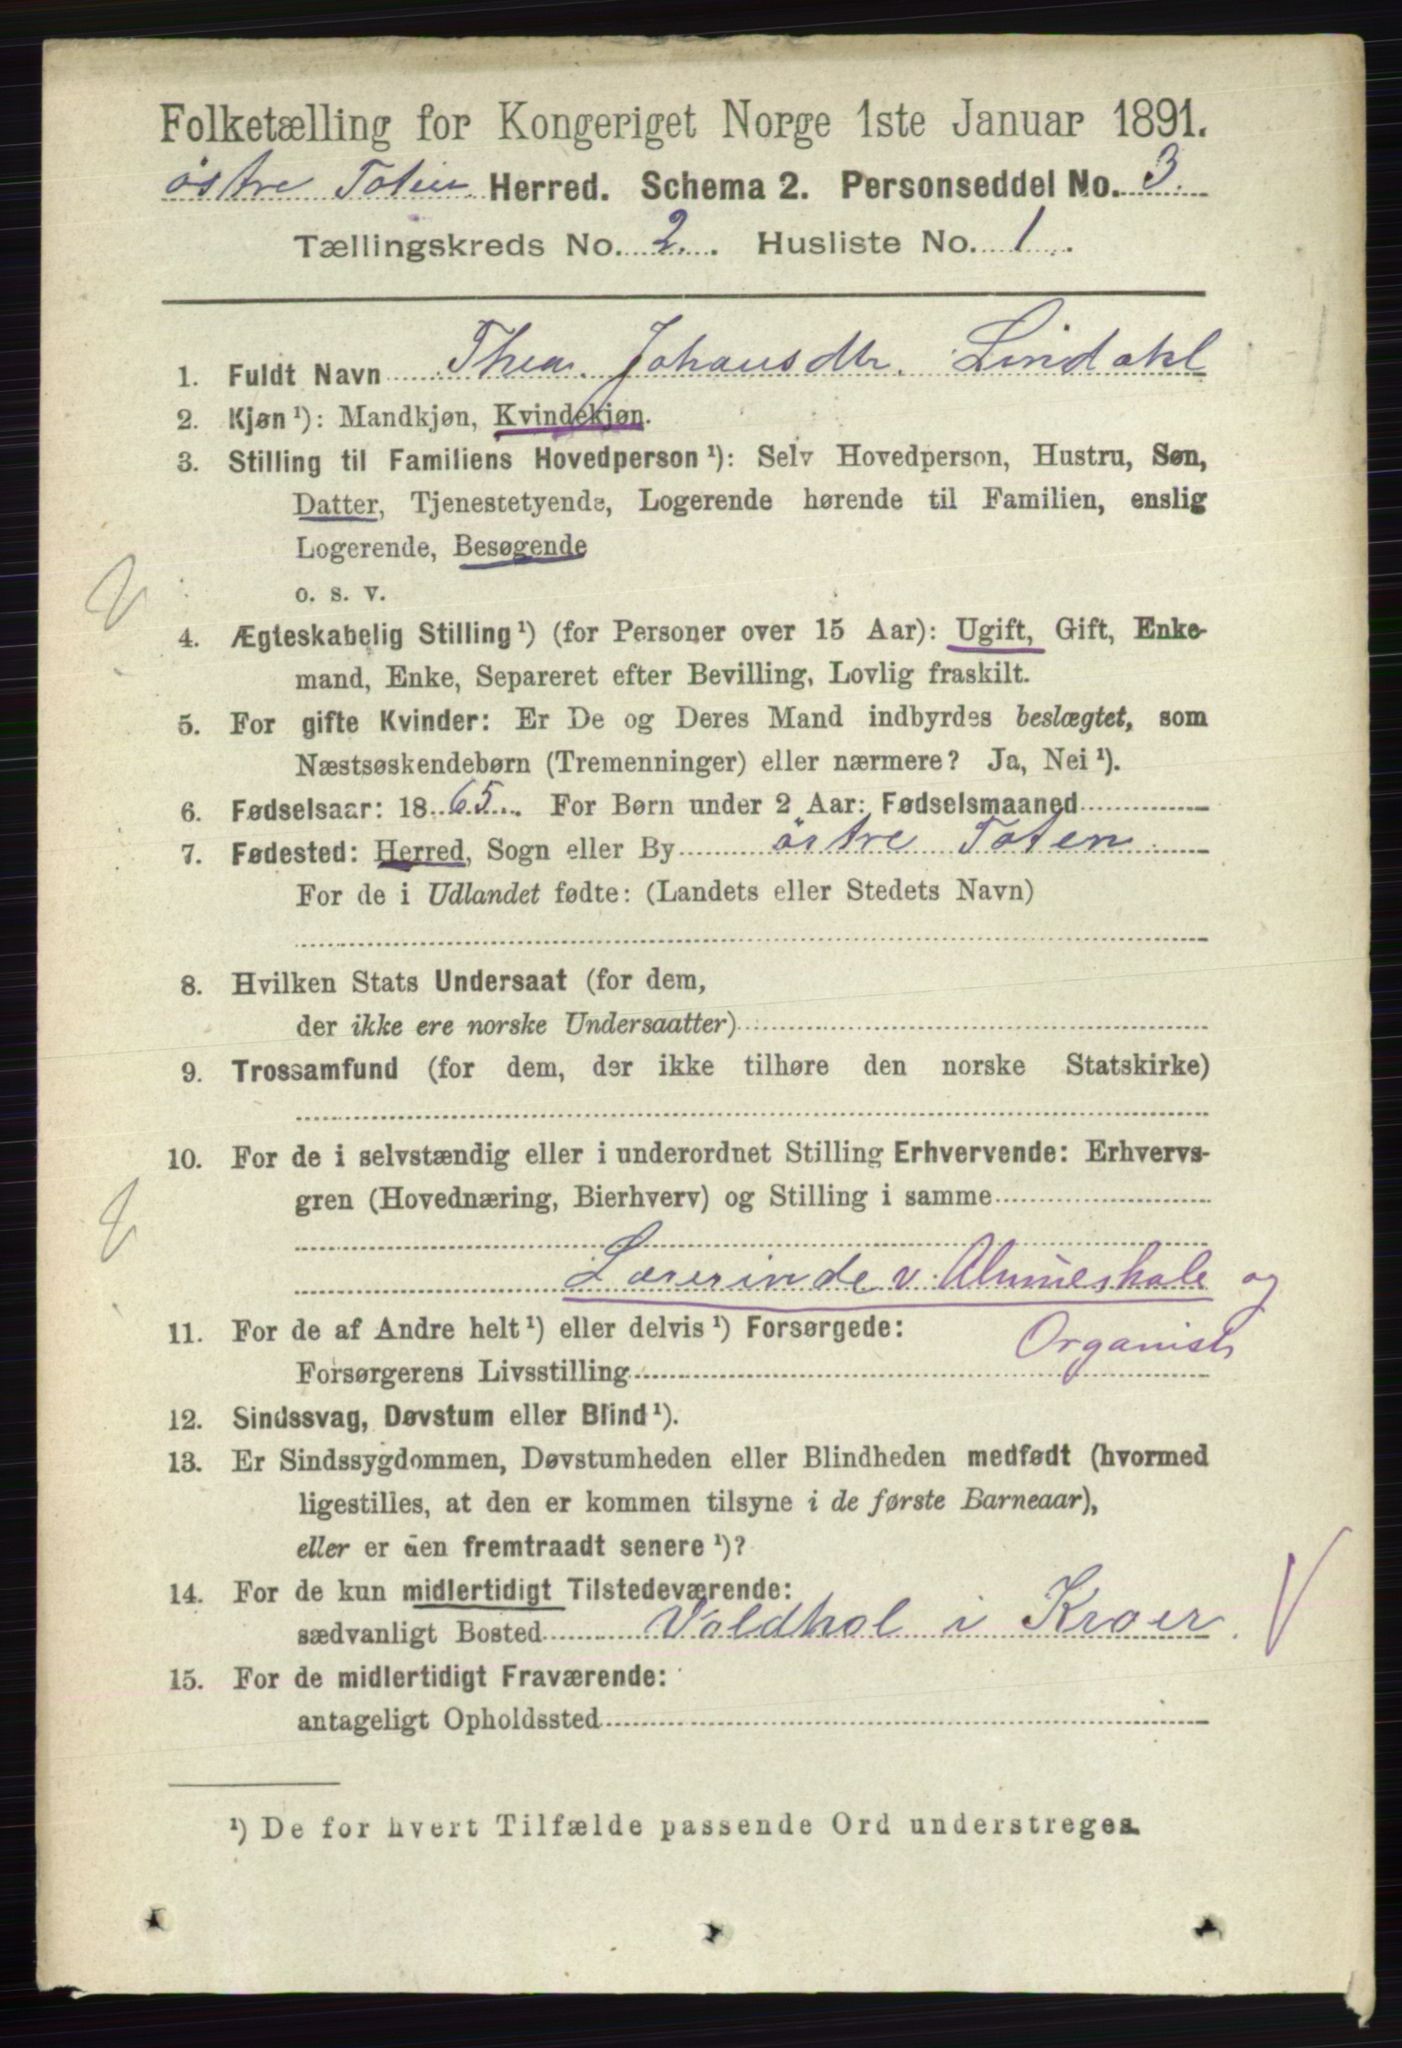 Folketælling for Kongeriget Norge 1ste Januar 1891.
østre Toten Herred. Schema 2. Personseddel No. 3.
Tællingskreds No. 2. Husliste No. 1.
1. Fuldt Navn Thea Johansdtr. Lindahl
2. Kjøn ¹): Mandkjøn, Kvindekjøn.
3. Stilling til Familiens Hovedperson ¹): Selv Hovedperson, Hustru, Søn,
Datter, Tjenestetyende, Logerende hørende til Familien, enslig
Logerende, Besøgende
o. s. v.
4. Ægteskabelig Stilling ¹) (for Personer over 15 Aar): Ugift, Gift, Enke-
mand, Enke, Separeret efter Bevilling, Lovlig fraskilt.
5. For gifte Kvinder: Er De og Deres Mand indbyrdes beslægtet, som
Næstsøskendebørn (Tremenninger) eller nærmere? Ja, Nei ¹).
6. Fødselsaar: 1865. For Børn under 2 Aar: Fødselsmaaned
7. Fødested: Herred, Sogn eller By østre Toten
For de i Udlandet fødte: (Landets eller Stedets Navn)
8. Hvilken Stats Undersaat (for dem,
der ikke ere norske Undersaatter)
9. Trossamfund (for dem, der ikke tilhøre den norske Statskirke)
10. For de i selvstændig eller i underordnet Stilling Erhvervende: Erhvervs-
gren (Hovednæring, Bierhverv) og Stilling i samme
Lærerinde v. Almueskole og
Organist
11. For de af Andre helt ¹) eller delvis ¹) Forsørgede:
Forsørgerens Livsstilling
12. Sindssvag, Døvstum eller Blind ¹).
13. Er Sindssygdommen, Døvstumheden eller Blindheden medfødt (hvormed
ligestilles, at den er kommen tilsyne i de første Barneaar),
eller er den fremtraadt senere ¹)?
14. For de kun midlertidigt Tilstedeværende:
sædvanligt Bosted Voldhol i Kroer.
15. For de midlertidigt Fraværende:
antageligt Opholdssted
¹) De for hvert Tilfælde passende Ord understreges.